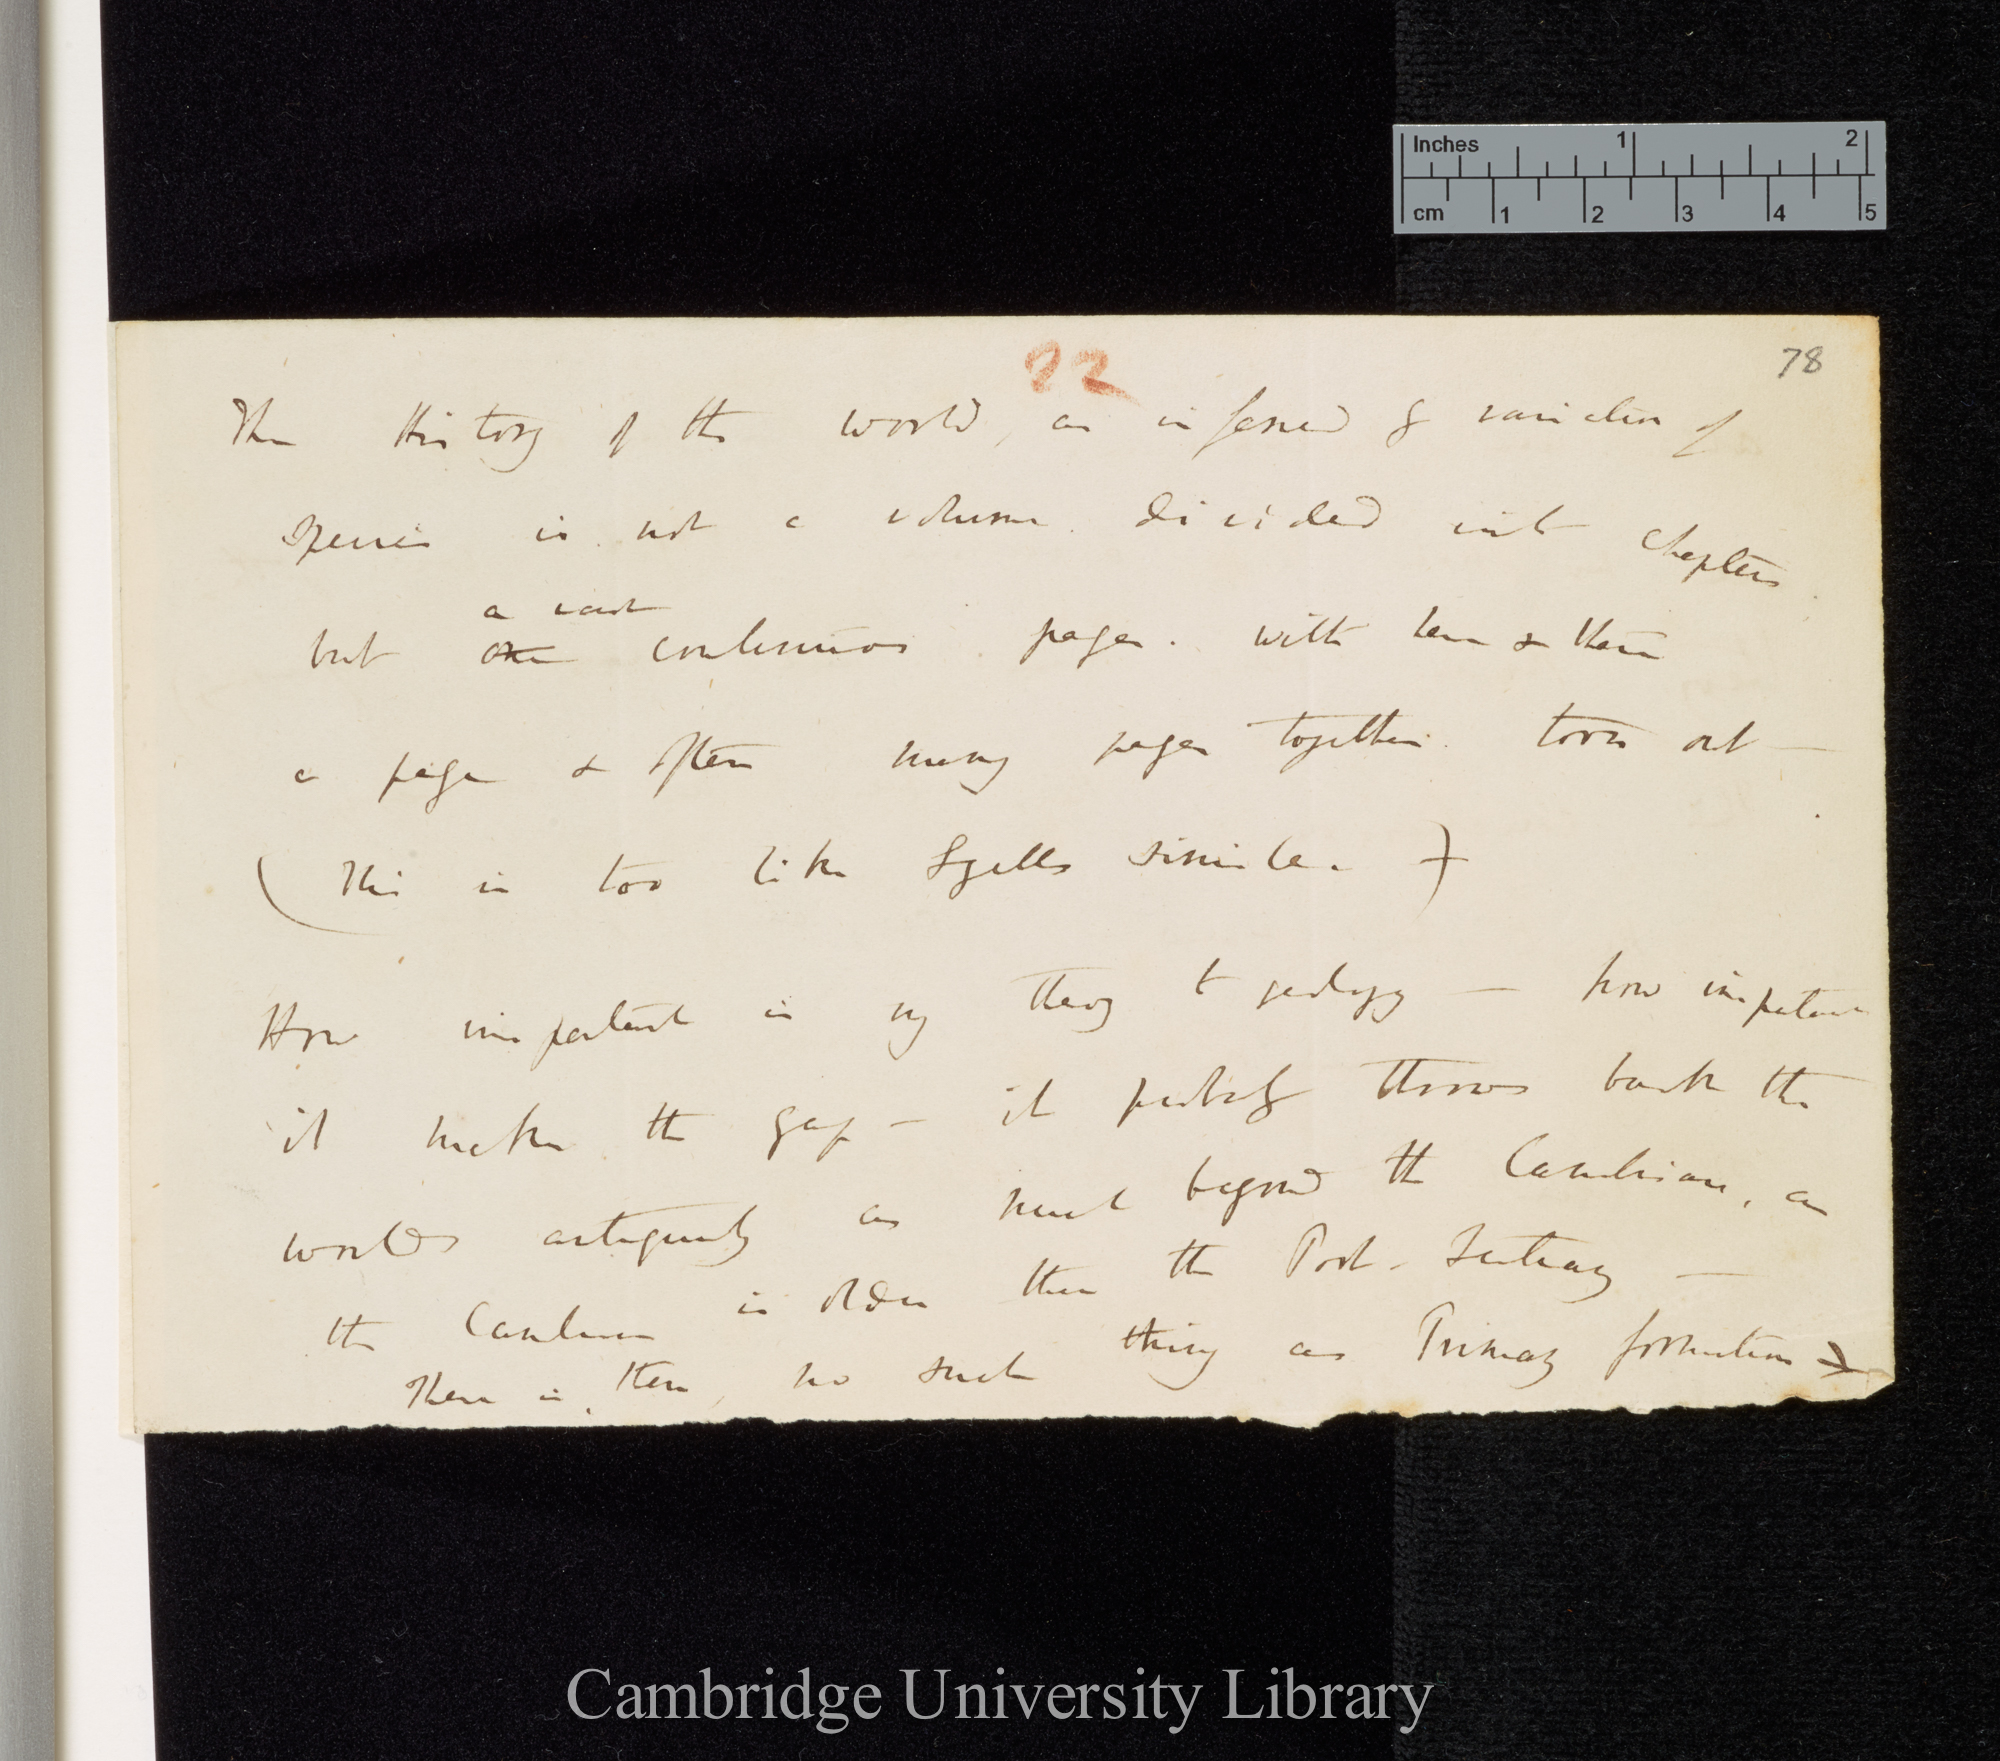 Inches 1 2
cm 1 2 3 4 5
22
78
The History of the world, as inferred by varieties of
species is not a volume divided into chapters
a vast
but one continuous page. with here & there
a page & often many pages together torn out —
(This is too like Lyells simile.)
How important is my theory to geology — how important
it makes the gap — it probably throws back the
worlds antiquity as much beyond the Cambrian, as
the Cambrian is older than the Post-Tertiary —
There is, then, no such thing as Primary formations
Cambridge University Library